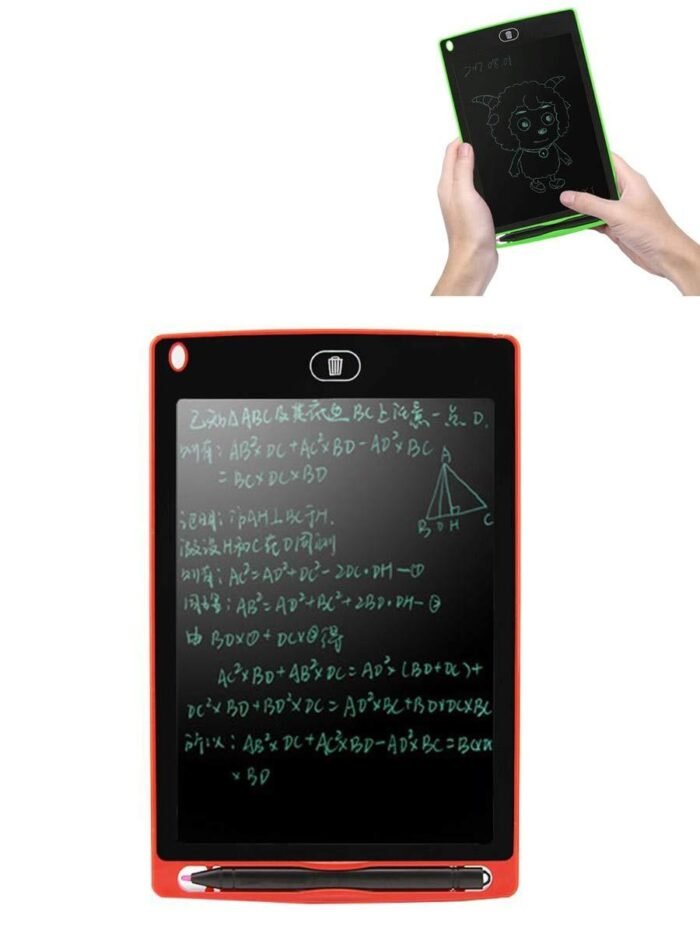 2017.08.01
已知△ABC及其底边BC上任意一点D,
则有: AB²×DC+AC²×BD-AD²×BC
=BC×DC×BD
A
B D H C
证明: 作AH⊥BC于H.
假设H和C在D同侧
则有: AC²=AD²+DC²-2DC·DH-①
同理: AB²=AD²+BC²+2BD·DH-②
由 BD×①+DC×②得
AC²×BD+AB²×DC=AD²×(BD+DC)+
DC²×BD+BD²×DC=AD²×BC+BD×DC×BC
所以: AB²×DC+AC²×BD-AD²×BC=BC×DC
×BD